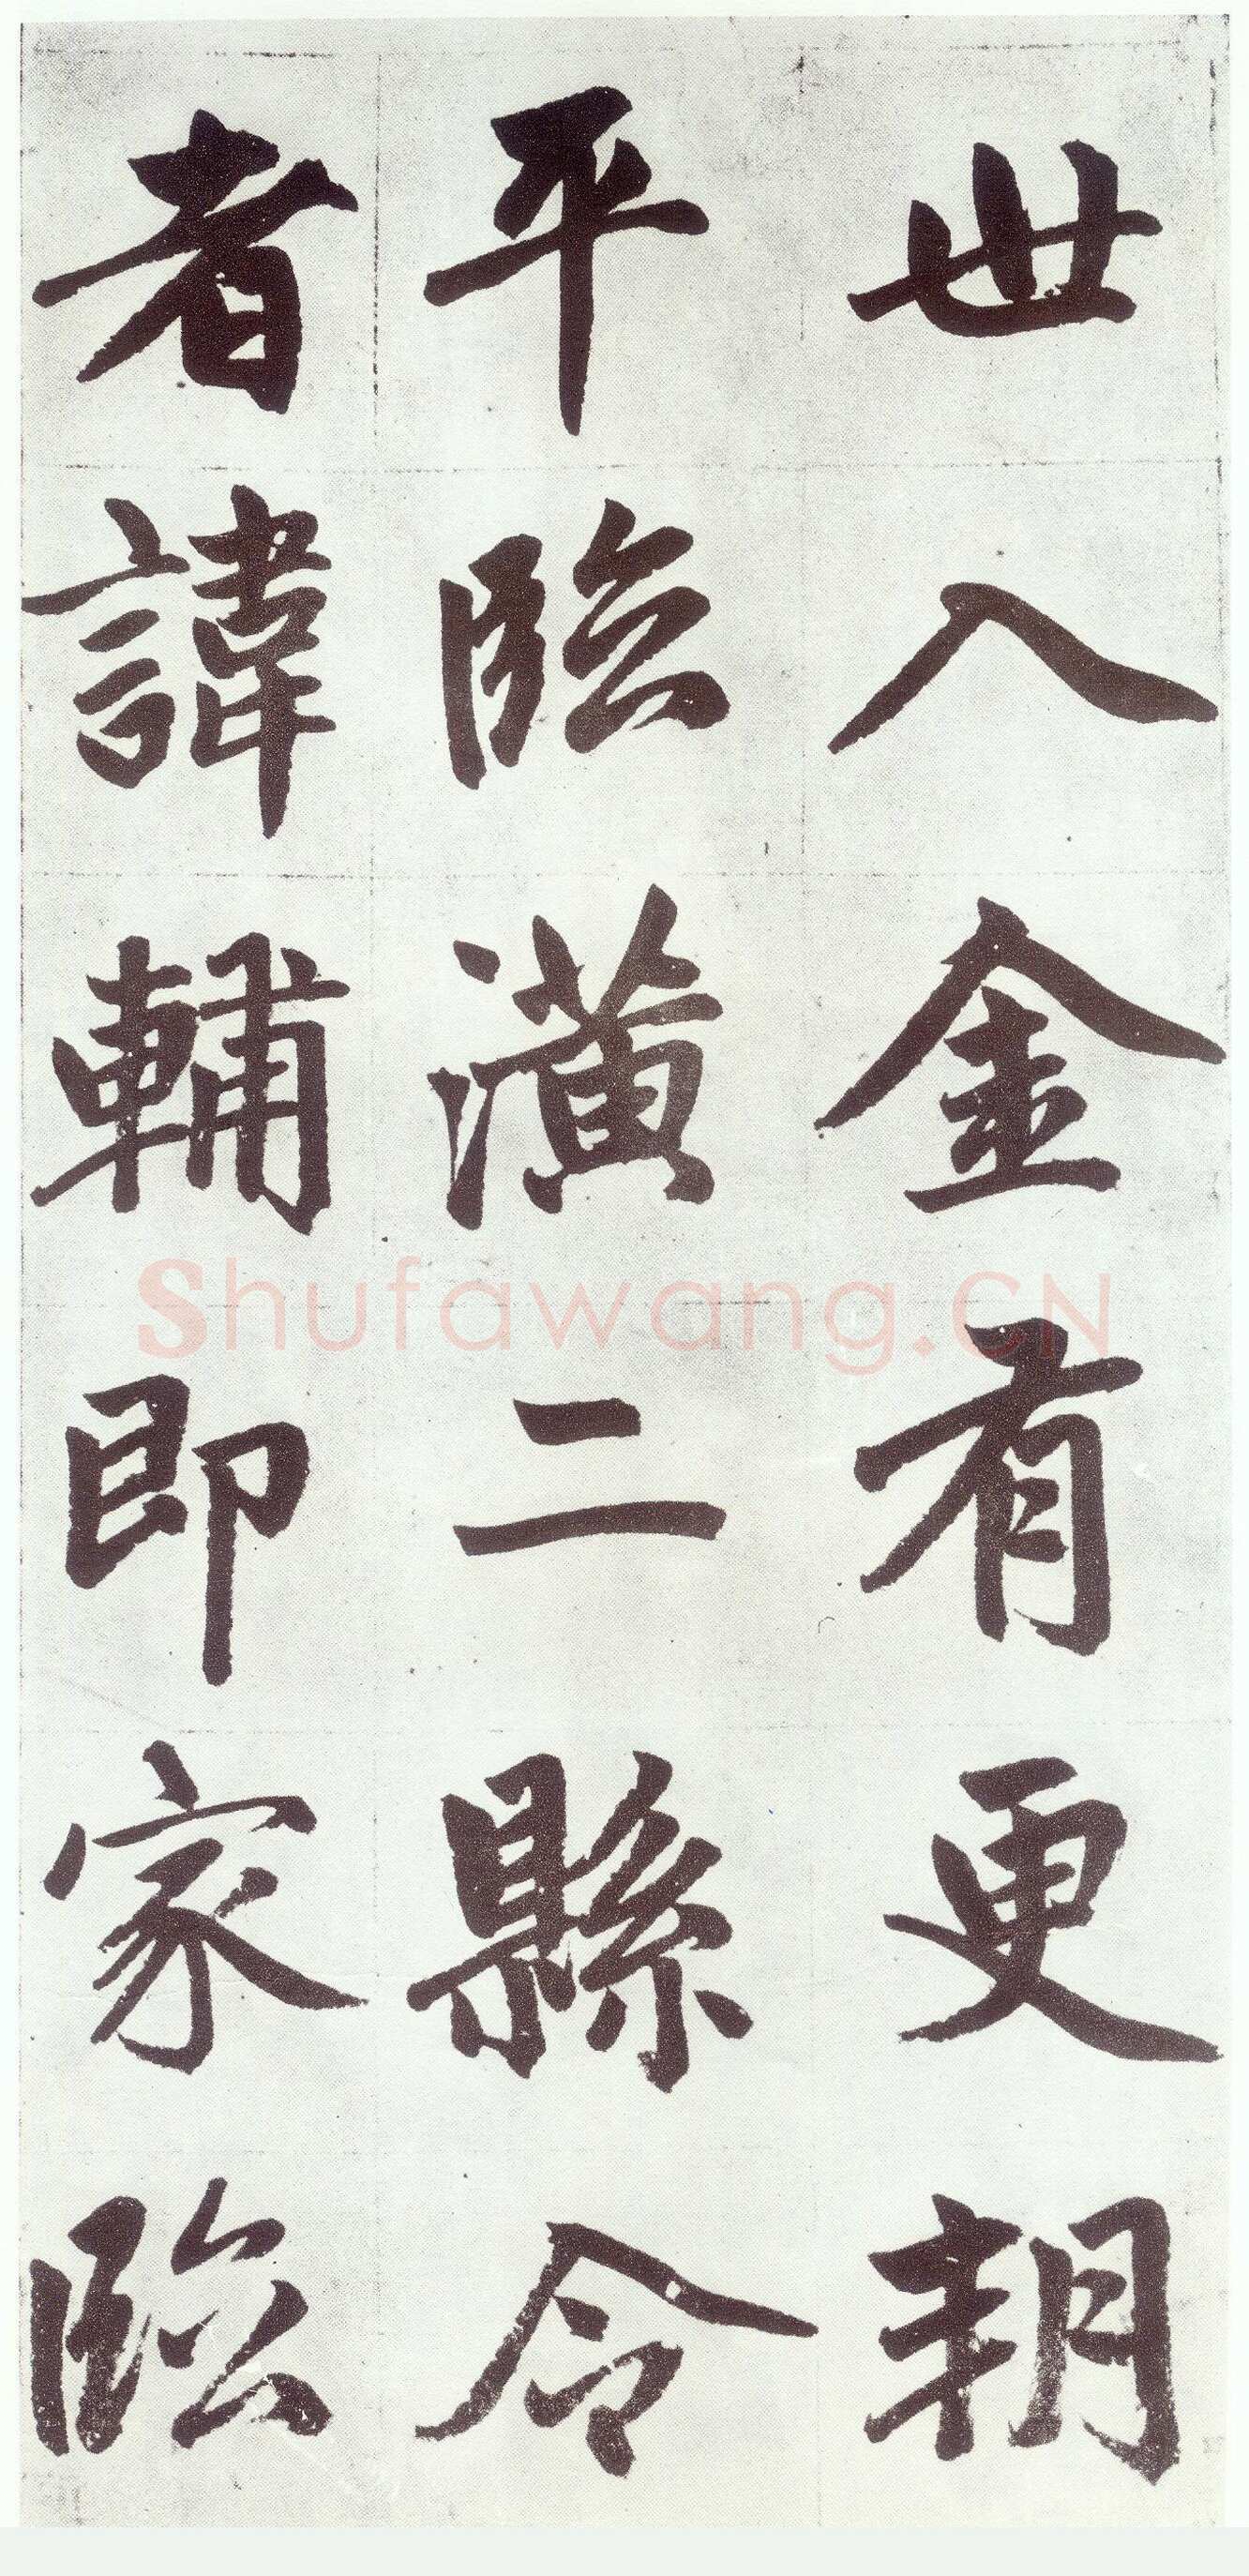 世入金有更朝
平臨潢二縣令
者諱輔即家臨
Shufawang.CN